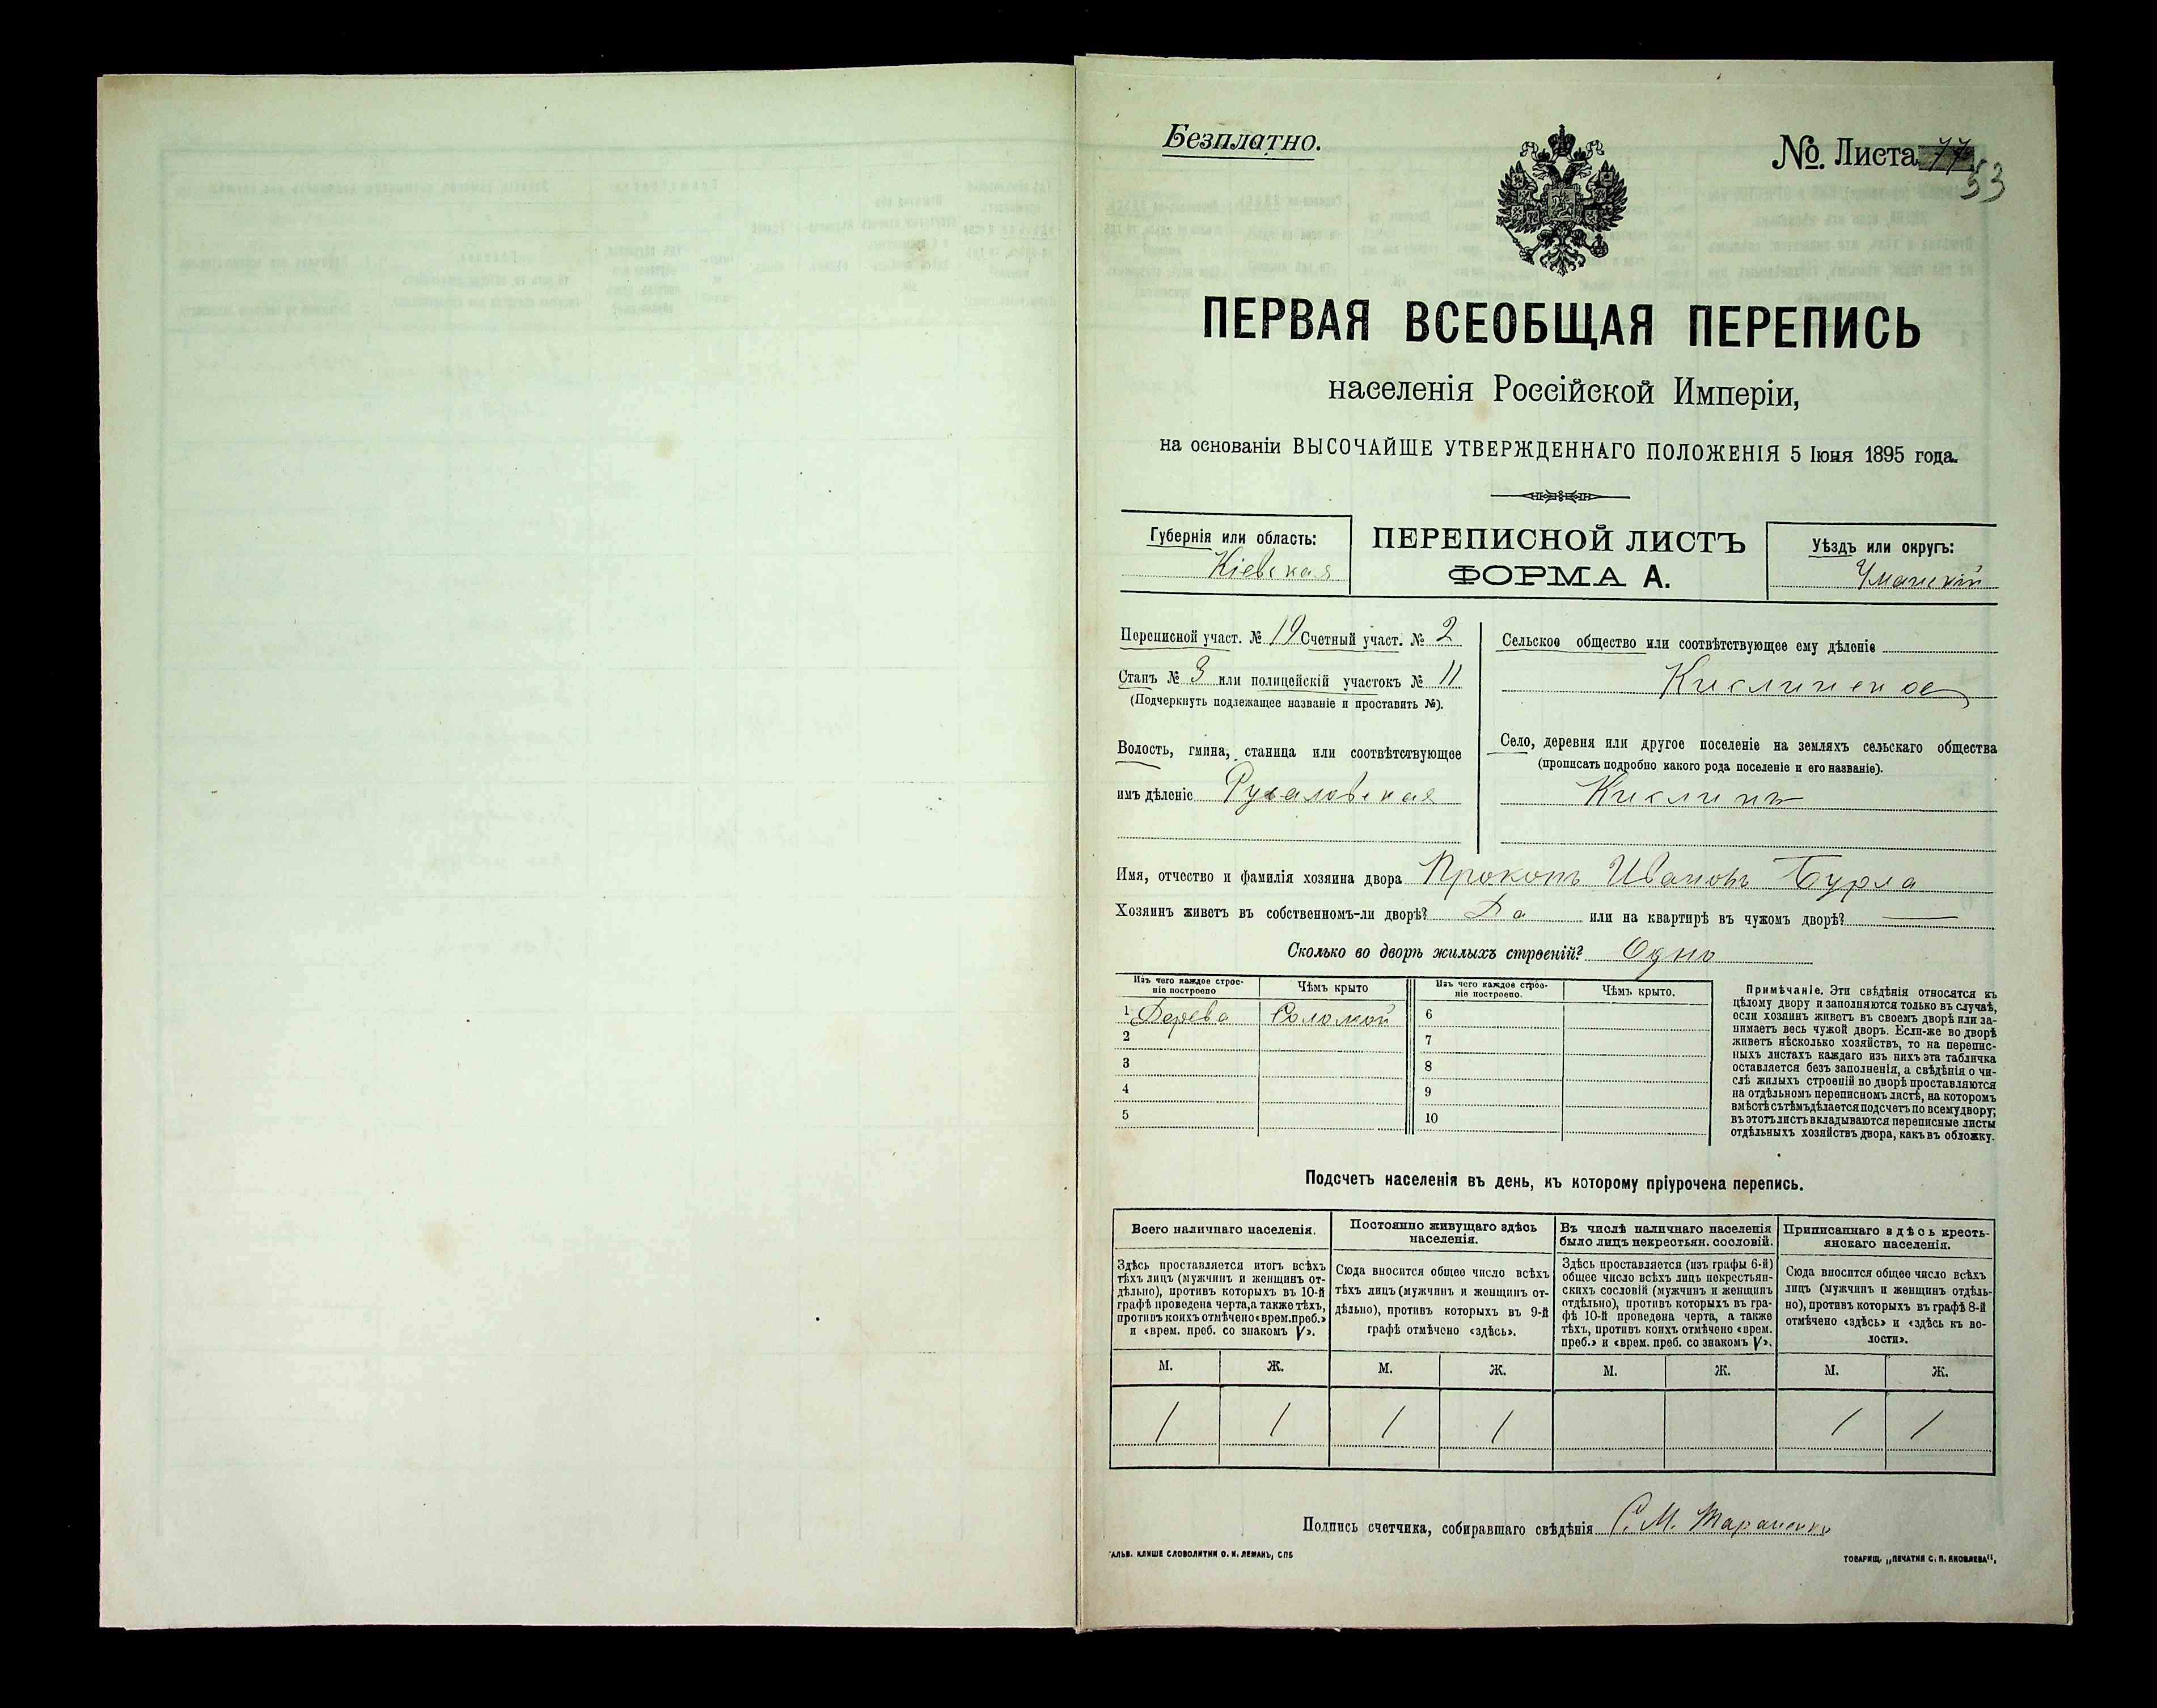 Безплатно.
№. Листа 77
53
ПЕРВАЯ ВСЕОБЩАЯ ПЕРЕПИСЬ
населенія Россійской Имперіи,
на основаніи ВЫСОЧАЙШЕ УТВЕРЖДЕННАГО ПОЛОЖЕНІЯ 5 Іюня 1895 года.
Губернія или область:
Кіевская
ПЕРЕПИСНОЙ ЛИСТЪ
ФОРМА А.
Уѣздъ или округъ:
Уманскій
Переписной участ. № 19 Счетный участ. № 2
Станъ № 3 или полицейскій участокъ № 11
(Подчеркнуть подлежащее названіе и проставить №).
Волость, гмина, станица или соотвѣтствующее
имъ дѣленіе Рузаловская
Сельское общество или соотвѣтствующее ему дѣленіе
Кислинское
Село, деревня или другое поселеніе на земляхъ сельскаго общества
(прописать подробно какого рода поселеніе и его названіе).
Кислинъ
Имя, отчество и фамилія хозяина двора Прокопъ Ивановъ Бурла
Хозяинъ живетъ въ собственномъ-ли дворѣ? Да или на квартирѣ въ чужомъ дворѣ?
Сколько во дворѣ жилыхъ строеній? Одно
Изъ чего каждое строе-
ніе построено
Чѣмъ крыто
Изъ чего каждое строе-
ніе построено.
Чѣмъ крыто.
1 Дерева Соломой 6
2 7
3 8
4 9
5 10
Примѣчаніе. Эти свѣдѣнія относятся къ
цѣлому двору и заполняются только въ случаѣ,
если хозяинъ живетъ въ своемъ дворѣ или за-
нимаетъ весь чужой дворъ. Если-же во дворѣ
живетъ нѣсколько хозяйствъ, то на перепис-
ныхъ листахъ каждаго изъ нихъ эта табличка
оставляется безъ заполненія, а свѣдѣнія о чи-
слѣ жилыхъ строеній во дворѣ проставляются
на отдѣльномъ переписномъ листѣ, на которомъ
вмѣстѣ съ тѣмъ дѣлается подсчетъ по всему двору;
въ этотъ листъ вкладываются переписные листы
отдѣльныхъ хозяйствъ двора, какъ въ обложку.
Подсчетъ населенія въ день, къ которому пріурочена перепись.
Всего наличнаго населенія.
Здѣсь проставляется итогъ всѣхъ
тѣхъ лицъ (мужчинъ и женщинъ от-
дѣльно), противъ которыхъ въ 10-й
графѣ проведена черта, а также тѣхъ,
противъ коихъ отмѣчено «врем. преб.»
и «врем. преб. со знакомъ V».
Постоянно живущаго здѣсь
населенія.
Сюда вносится общее число всѣхъ
тѣхъ лицъ (мужчинъ и женщинъ от-
дѣльно), противъ которыхъ въ 9-й
графѣ отмѣчено «здѣсь».
Въ числѣ наличнаго населенія
было лицъ некрестьян. сословій.
Здѣсь проставляется (изъ графы 6-й)
общее число всѣхъ лицъ некрестьян-
скихъ сословій (мужчинъ и женщинъ
отдѣльно), противъ которыхъ въ гра-
фѣ 10-й проведена черта, а также
тѣхъ, противъ коихъ отмѣчено «врем.
преб.» и «врем. преб. со знакомъ V».
Приписаннаго здѣсь кресть-
янскаго населенія.
Сюда вносится общее число всѣхъ
лицъ (мужчинъ и женщинъ отдѣль-
но), противъ которыхъ въ графѣ 8-й
отмѣчено «здѣсь» и «здѣсь къ во-
лости».
М. Ж. М. Ж. М. Ж. М. Ж.
1 1 1 1 1 1
Подпись счетчика, собиравшаго свѣдѣнія С. М. Тараненко
ГАЛЬВ. КЛИШЕ СЛОВОЛИТНИ О. И. ЛЕМАНЪ, СПБ
ТОВАРИЩ. „ПЕЧАТНЯ С. П. ЯКОВЛЕВА“.